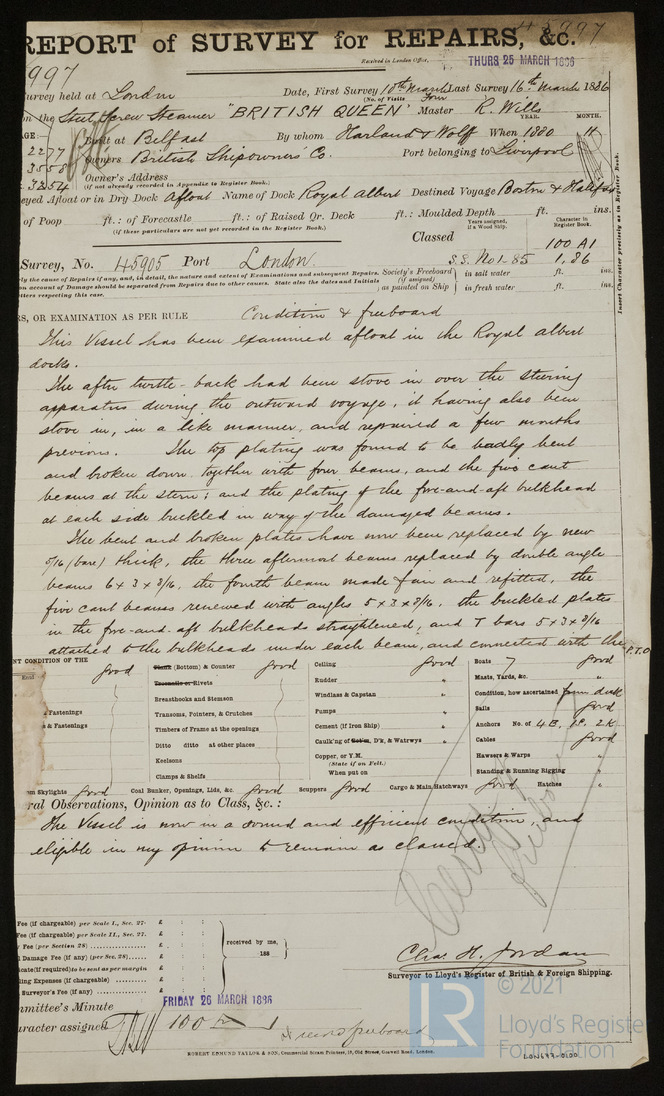 REPORT of SURVEY for REPAIRS, &c.
Received in London Office, THURS 25 MARCH 1886
Survey held at London Date, First Survey 10th March Last Survey 16th March 1886
(No. of Visits Four
on the Steel Screw Steamer "BRITISH QUEEN" Master R. Wills
YEAR. MONTH.
2277 Built at Belfast By whom Harland & Wolff When 1880 11
3558 Owners British Shipowners Co. Port belonging to Liverpool
3254 Owner's Address
(if not already recorded in Appendix to Register Book.)
eyed Afloat or in Dry Dock Afloat Name of Dock Royal Albert Destined Voyage Boston & Halifax
of Poop ft.: of Forecastle ft.: of Raised Qr. Deck ft.: Moulded Depth ft. ins.
(if these particulars are not yet recorded in the Register Book.)
Years assigned, if a Wood Ship. Character in Register Book.
Insert Character precisely as in Register Book.
Classed 100 A1
Survey, No. 45905 Port London S.S. No1-85 1.86
ly the cause of Repairs if any, and, in detail, the nature and extent of Examinations and subsequent Repairs.
on account of Damage should be separated from Repairs due to other causes. State also the dates and Initials
letters respecting this case.
Society's Freeboard (if assigned) as painted on Ship
in salt water ft. ins.
in fresh water ft. ins.
RS, OR EXAMINATION AS PER RULE Condition & freeboard
This Vessel has been examined afloat in the Royal albert
docks.
The after turtle-back had been stove in over the steering
apparatus during the outward voyage, it having also been
stove in, in a like manner, and repaired a few months
previous. The top plating was found to be badly bent
and broken down together with four beams, and the five cant
beams at the stern; and the plating of the fore-and-aft bulkhead
at each side buckled in way of the damaged beams.
The bent and broken plates have now been replaced by new
5/16 (bare) thick, the three aftermost beams replaced by double angle
beams 6 x 3 x 8/16, the fourth beam made fair and refitted, the
five cant beams renewed with angles 5 x 3 x 8/16, the buckled plates
in the fore-and-aft bulkheads straightened, and T bars 5 x 3 x 8/16
attached to the bulkheads under each beam, and connected with the
P.T.O
NT CONDITION OF THE
good
Fastenings
& Fastenings
Plank (Bottom) & Counter good
Treenails or Rivets
Breasthooks and Stemson
Transoms, Pointers, & Crutches
Timbers of Frame at the openings
Ditto ditto at other places
Keelsons
Clamps & Shelfs
Ceiling good
Rudder "
Windlass & Capstan "
Pumps "
Cement (if Iron Ship) "
Caulk'ng of Bot'm, D'k, & Watrwys "
Copper, or Y.M.
(State if on Felt.)
When put on
Boats 7 good
Masts, Yards, &c. "
Condition, how ascertained from deck
Sails good
Anchors No. of 4B, 1S. 2K
Cables good
Hawsers & Warps "
Standing & Running Rigging "
Skylights good Coal Bunker, Openings, Lids, &c. good Scuppers good Cargo & Main Hatchways good Hatches "
ral Observations, Opinion as to Class, &c.:
The Vessel is now in a sound and efficient condition, and
eligible in my opinion to remain as classed.
Fee (if chargeable) per Scale I., Sec. 27. £ : :
Fee (if chargeable) per Scale II., Sec. 27. £ : :
Fee (per Section 28) £ : :
Damage Fee (if any) (per Sec. 28) £ : :
cate (if required) to be sent as per margin £ : :
ling Expenses (if chargeable) £ : :
Surveyor's Fee (if any) £ : :
received by me, 188
Chas. H. Jordan
Surveyor to Lloyd's Register of British & Foreign Shipping.
mmittee's Minute FRIDAY 26 MARCH 1886
aracter assigned 100 A 1
& record freeboard
ROBERT EDMUND TAYLOR & SON, Commercial Steam Printers, 19, Old Street, Goswell Road, London.
LON697-0100
LR
© 2021
Lloyd's Register
Foundation